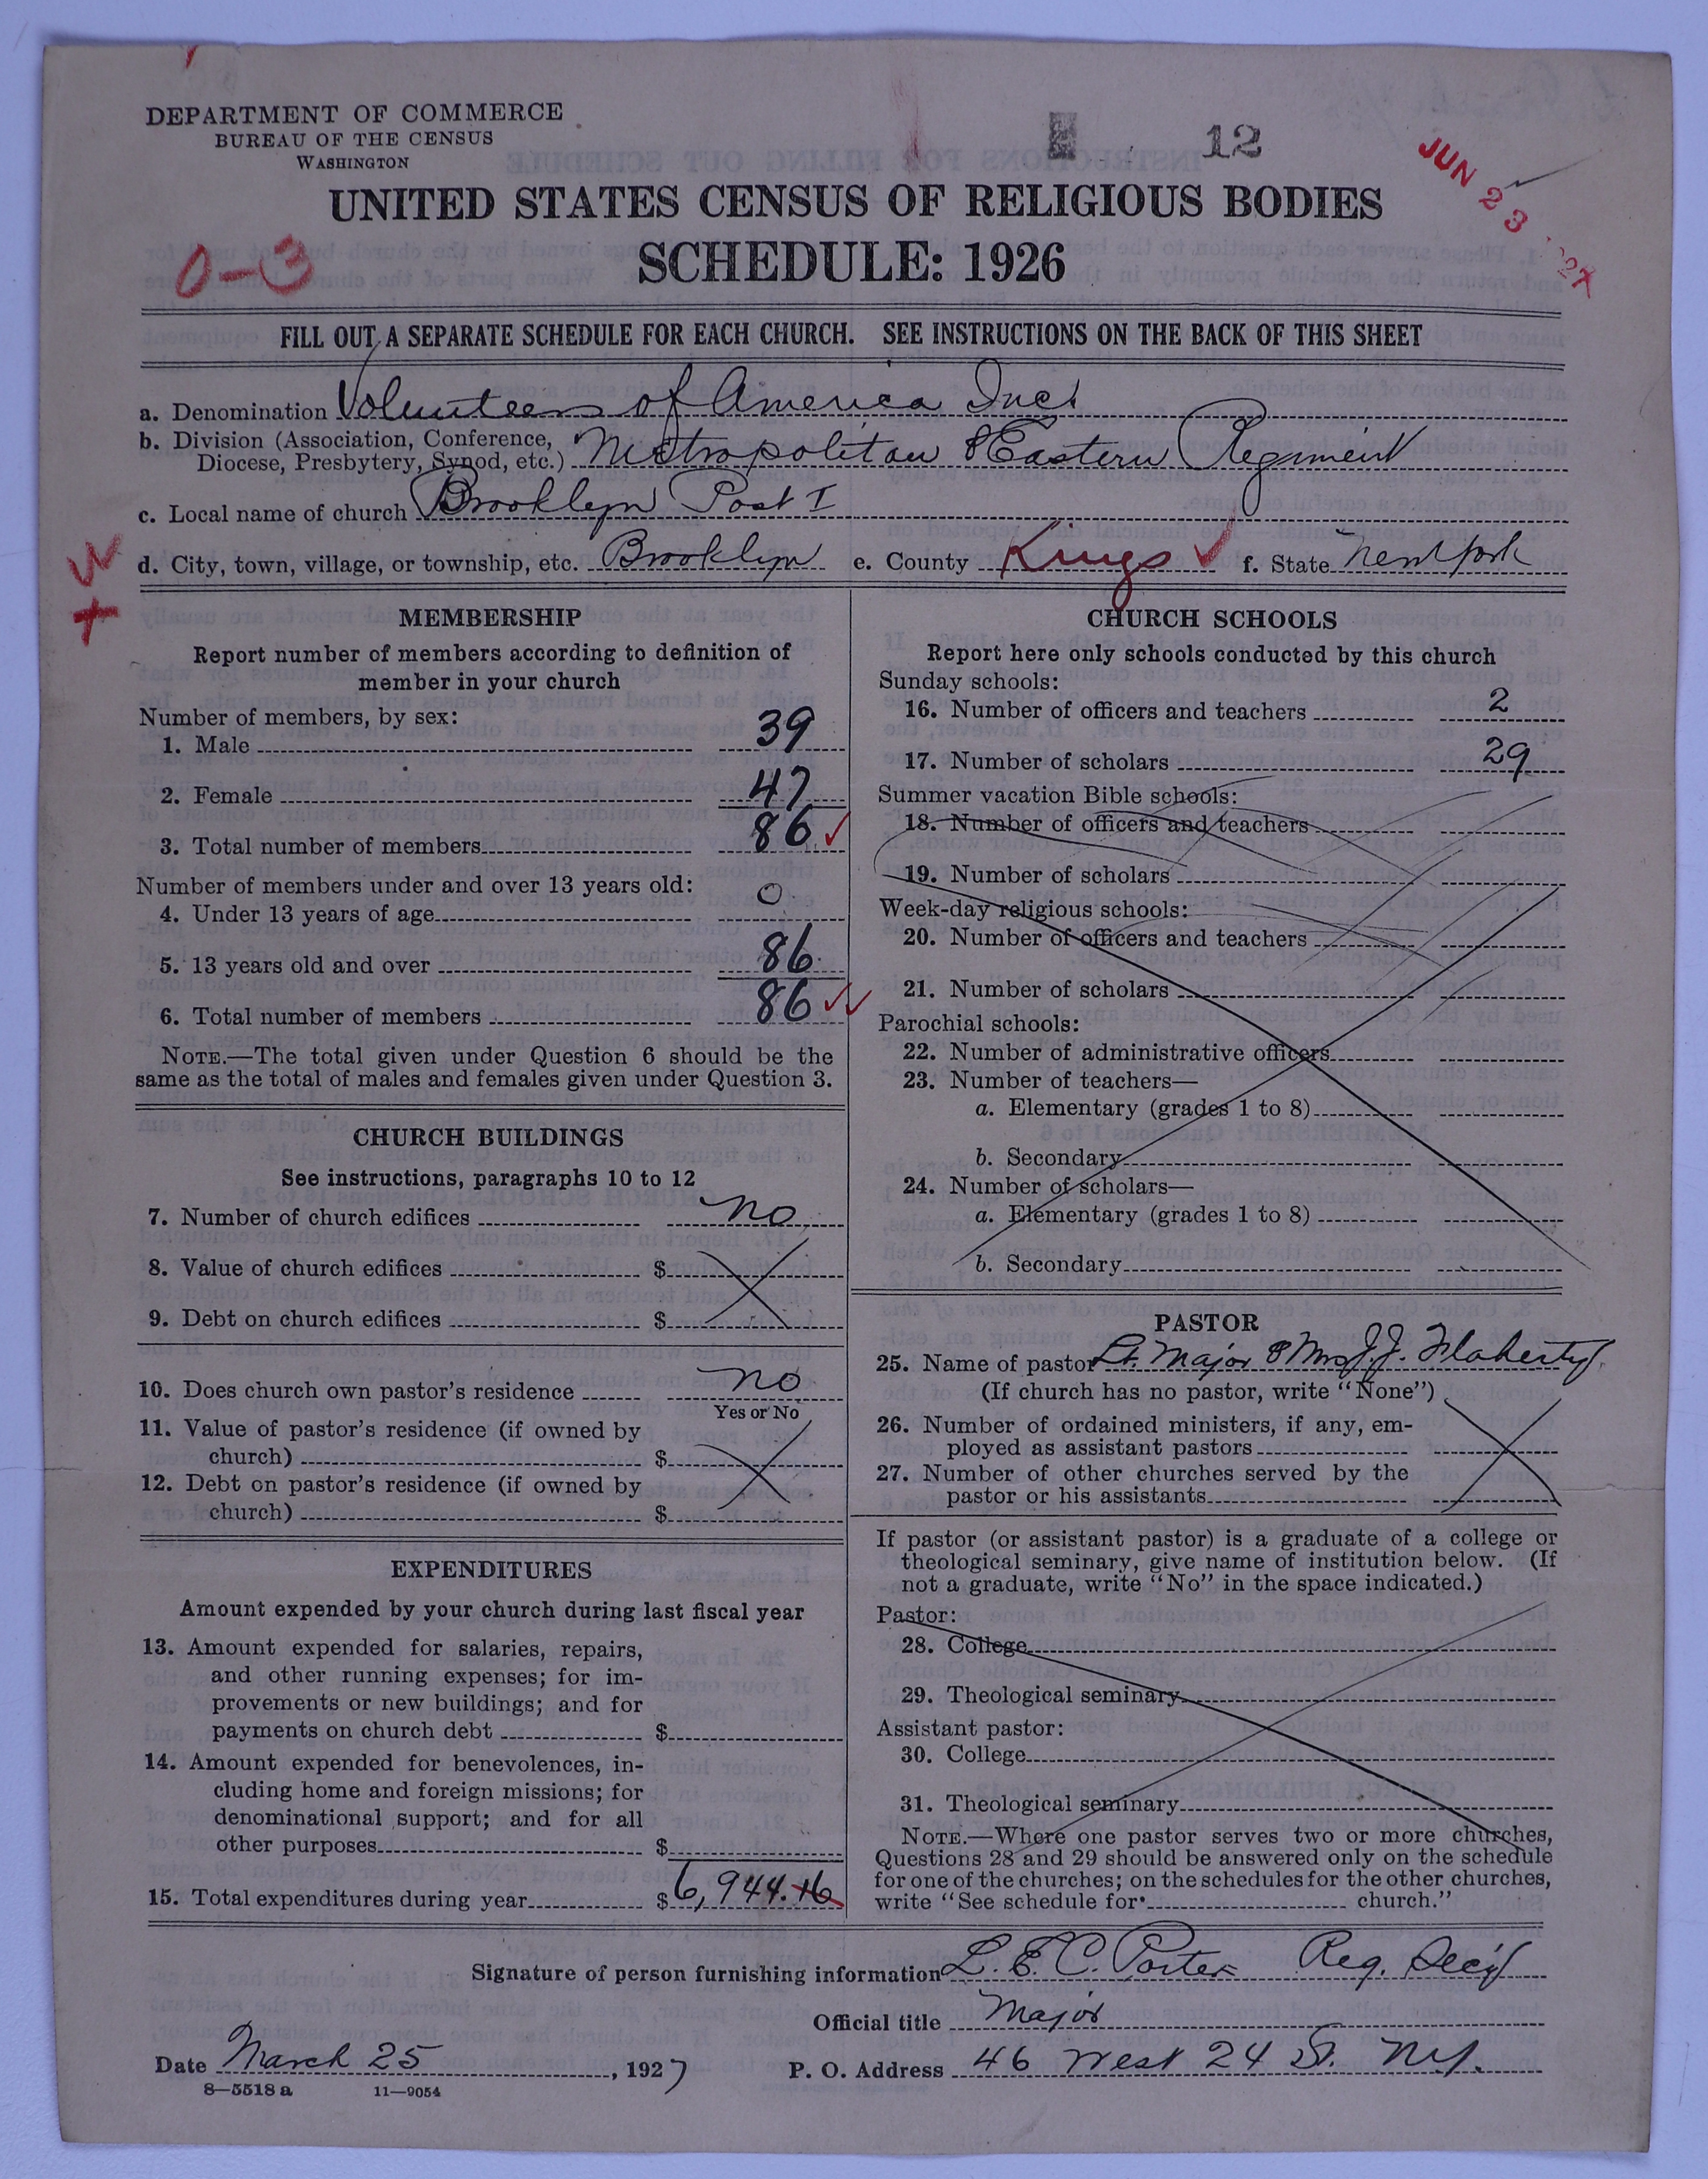 DEPARTMENT OF COMMERCE
BUREAU OF THE CENSUS
WASHINGTON
12
JUN 23
UNITED STATES CENSUS OF RELIGIOUS BODIES
SCHEDULE: 1926
0-3
FILL OUT A SEPARATE SCHEDULE FOR EACH CHURCH. SEE INSTRUCTIONS ON THE BACK OF THIS SHEET
a. Denomination Volunteers of America Inc.
b. Division (Association, Conference, Diocese, Presbytery, Synod, etc.) Metropolitan & Eastern Regiment
c. Local name of church Brooklyn Post I
d. City, town, village, or township, etc. Brooklyn e. County Kings ✓ f. State New York
MEMBERSHIP
Report number of members according to definition of
member in your church
Number of members, by sex:
1. Male 39
2. Female 47
3. Total number of members 86 ✓
Number of members under and over 13 years old:
4. Under 13 years of age 0
5. 13 years old and over 86
6. Total number of members 86 ✓✓
NOTE.—The total given under Question 6 should be the
same as the total of males and females given under Question 3.
CHURCH BUILDINGS
See instructions, paragraphs 10 to 12
7. Number of church edifices no
8. Value of church edifices $
9. Debt on church edifices $
10. Does church own pastor's residence no
Yes or No
11. Value of pastor's residence (if owned by
church) $
12. Debt on pastor's residence (if owned by
church) $
EXPENDITURES
Amount expended by your church during last fiscal year
13. Amount expended for salaries, repairs,
and other running expenses; for im-
provements or new buildings; and for
payments on church debt $
14. Amount expended for benevolences, in-
cluding home and foreign missions; for
denominational support; and for all
other purposes $
15. Total expenditures during year $6,944.16
CHURCH SCHOOLS
Report here only schools conducted by this church
Sunday schools:
16. Number of officers and teachers 2
17. Number of scholars 29
Summer vacation Bible schools:
18. Number of officers and teachers
19. Number of scholars
Week-day religious schools:
20. Number of officers and teachers
21. Number of scholars
Parochial schools:
22. Number of administrative officers
23. Number of teachers—
a. Elementary (grades 1 to 8)
b. Secondary
24. Number of scholars—
a. Elementary (grades 1 to 8)
b. Secondary
PASTOR
25. Name of pastor Lt. Major & Mrs J. J. Flaherty
(If church has no pastor, write "None")
26. Number of ordained ministers, if any, em-
ployed as assistant pastors
27. Number of other churches served by the
pastor or his assistants
If pastor (or assistant pastor) is a graduate of a college or
theological seminary, give name of institution below. (If
not a graduate, write "No" in the space indicated.)
Pastor:
28. College
29. Theological seminary
Assistant pastor:
30. College
31. Theological seminary
NOTE.—Where one pastor serves two or more churches,
Questions 28 and 29 should be answered only on the schedule
for one of the churches; on the schedules for the other churches,
write "See schedule for church."
Signature of person furnishing information L. E. C. Porter Reg. Sec'y
Official title Major
Date March 25, 1927 P. O. Address 46 West 24 St. N.Y.
8—5518 a 11—9054